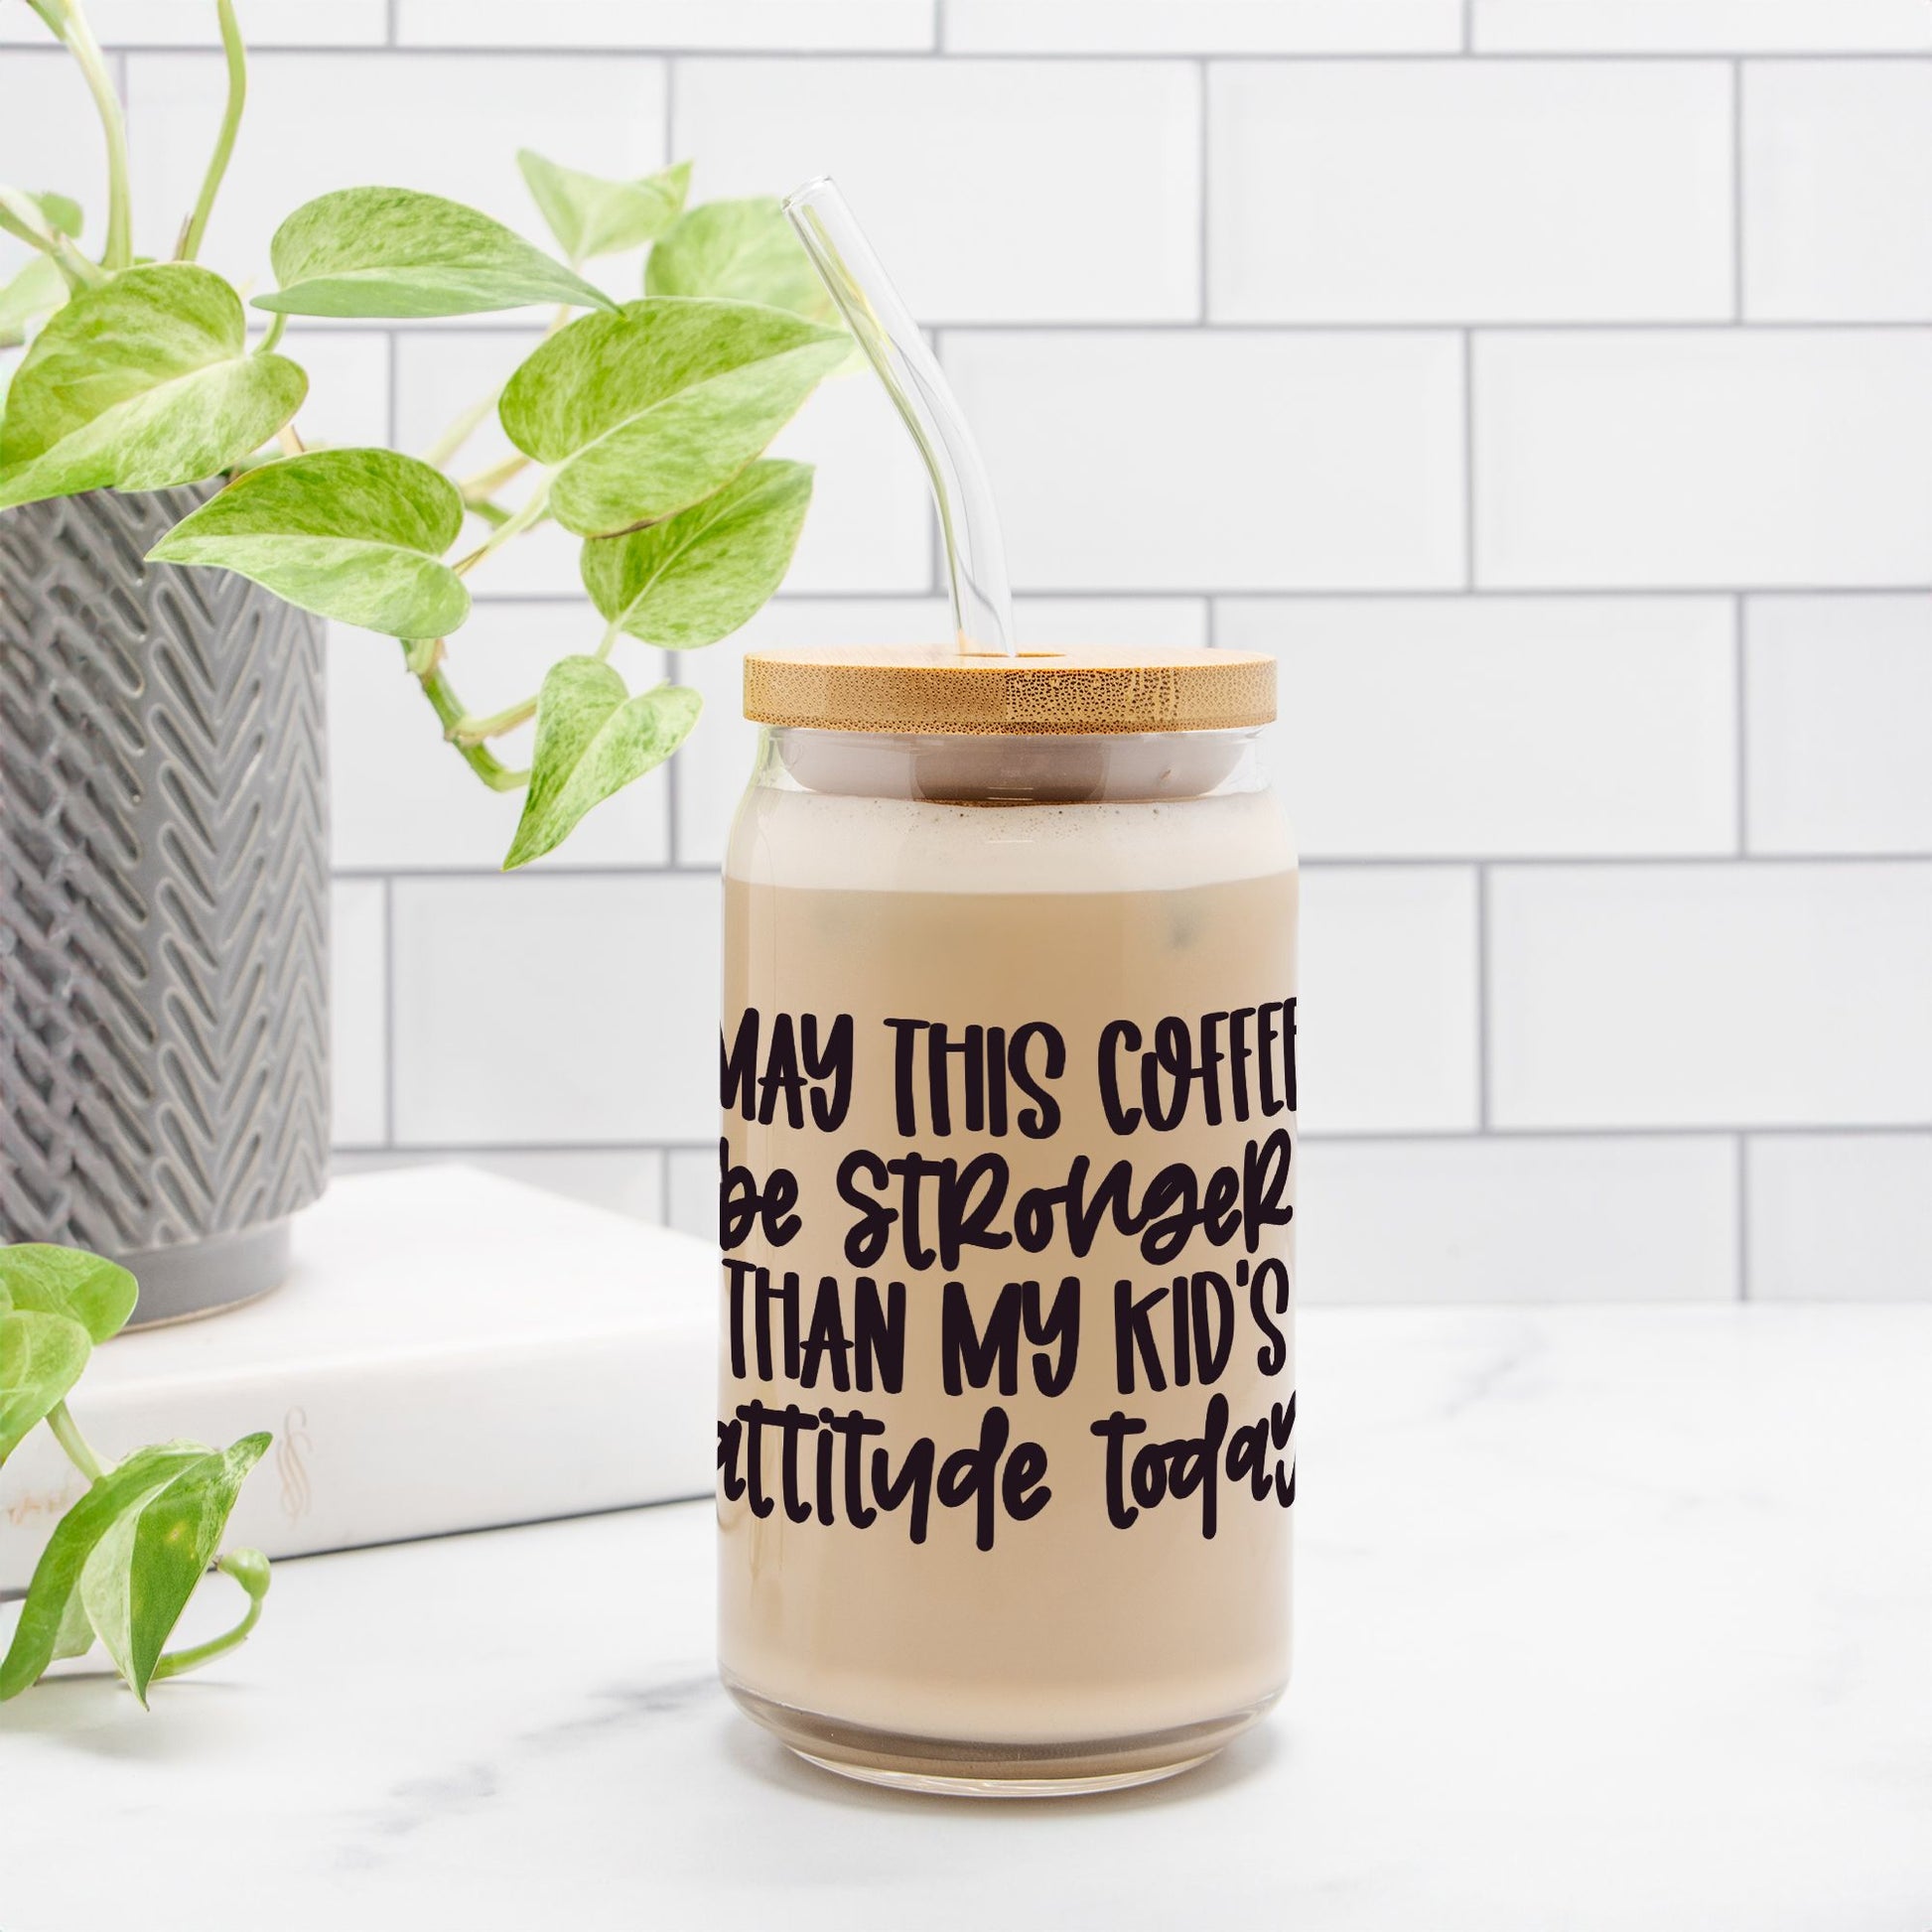 MAY THIS COFFEE
be stronger
THAN MY KID'S
attitude today